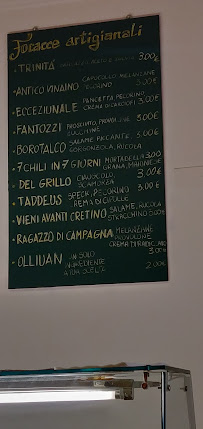 Focacce artigianali
• TRINITÀ 3,00€
• ANTICO VINAINO CAPOCOLLO, MELANZANE
PECORINO 5,00€
• ECCEZIUNALE PANCETTA, PECORINO
CREMA DI CARCIOFI 3,00€
• FANTOZZI PROSCIUTTO, PROVOLONE
ZUCCHINE 3,00€
• BOROTALCO SALAME PICCANTE
GORGONZOLA, RUCOLA
• 7 CHILI IN 7 GIORNI MORTADELLA 3,00
GRANA, MAIONESE
• DEL GRILLO CIAUSCOLO 3,00€
SCAMORZA
• TADDEUS SPECK, PECORINO 3,00
CREMA DI CIPOLLE
• VIENI AVANTI CRETINO SALAME, RUCOLA
STRACCHINO 3,00€
• RAGAZZO DI CAMPAGNA
PROVOLONE
CREMA DI RADICCHIO
3,00€
• OLLIUAN UN SOLO
INGREDIENTE
A TUA SCELTA 2,00€